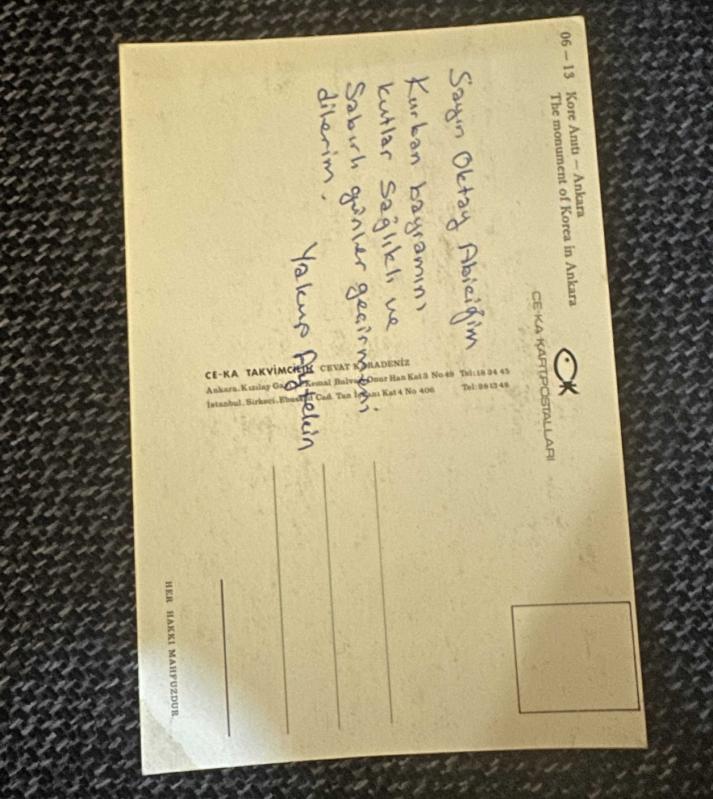 06 — 13 Kore Anıtı — Ankara
The monument of Korea in Ankara
Sayın Oktay Abiciğim
Kurban bayramını
kutlar sağlıklı ve
Sabırlı günler geçirmeni
dilerim.
Yakup
CE-KA KARTPOSTALLARI
CE-KA TAKVİMCİLİK CEVAT KARADENİZ
Ankara. Kızılay Kemal Onur Han Kat 3 No 49 Tel: 18 34 45
İstanbul. Sirkeci. Cad. Tan Kat 4 No 406 Tel:
HER HAKKI MAHFUZDUR